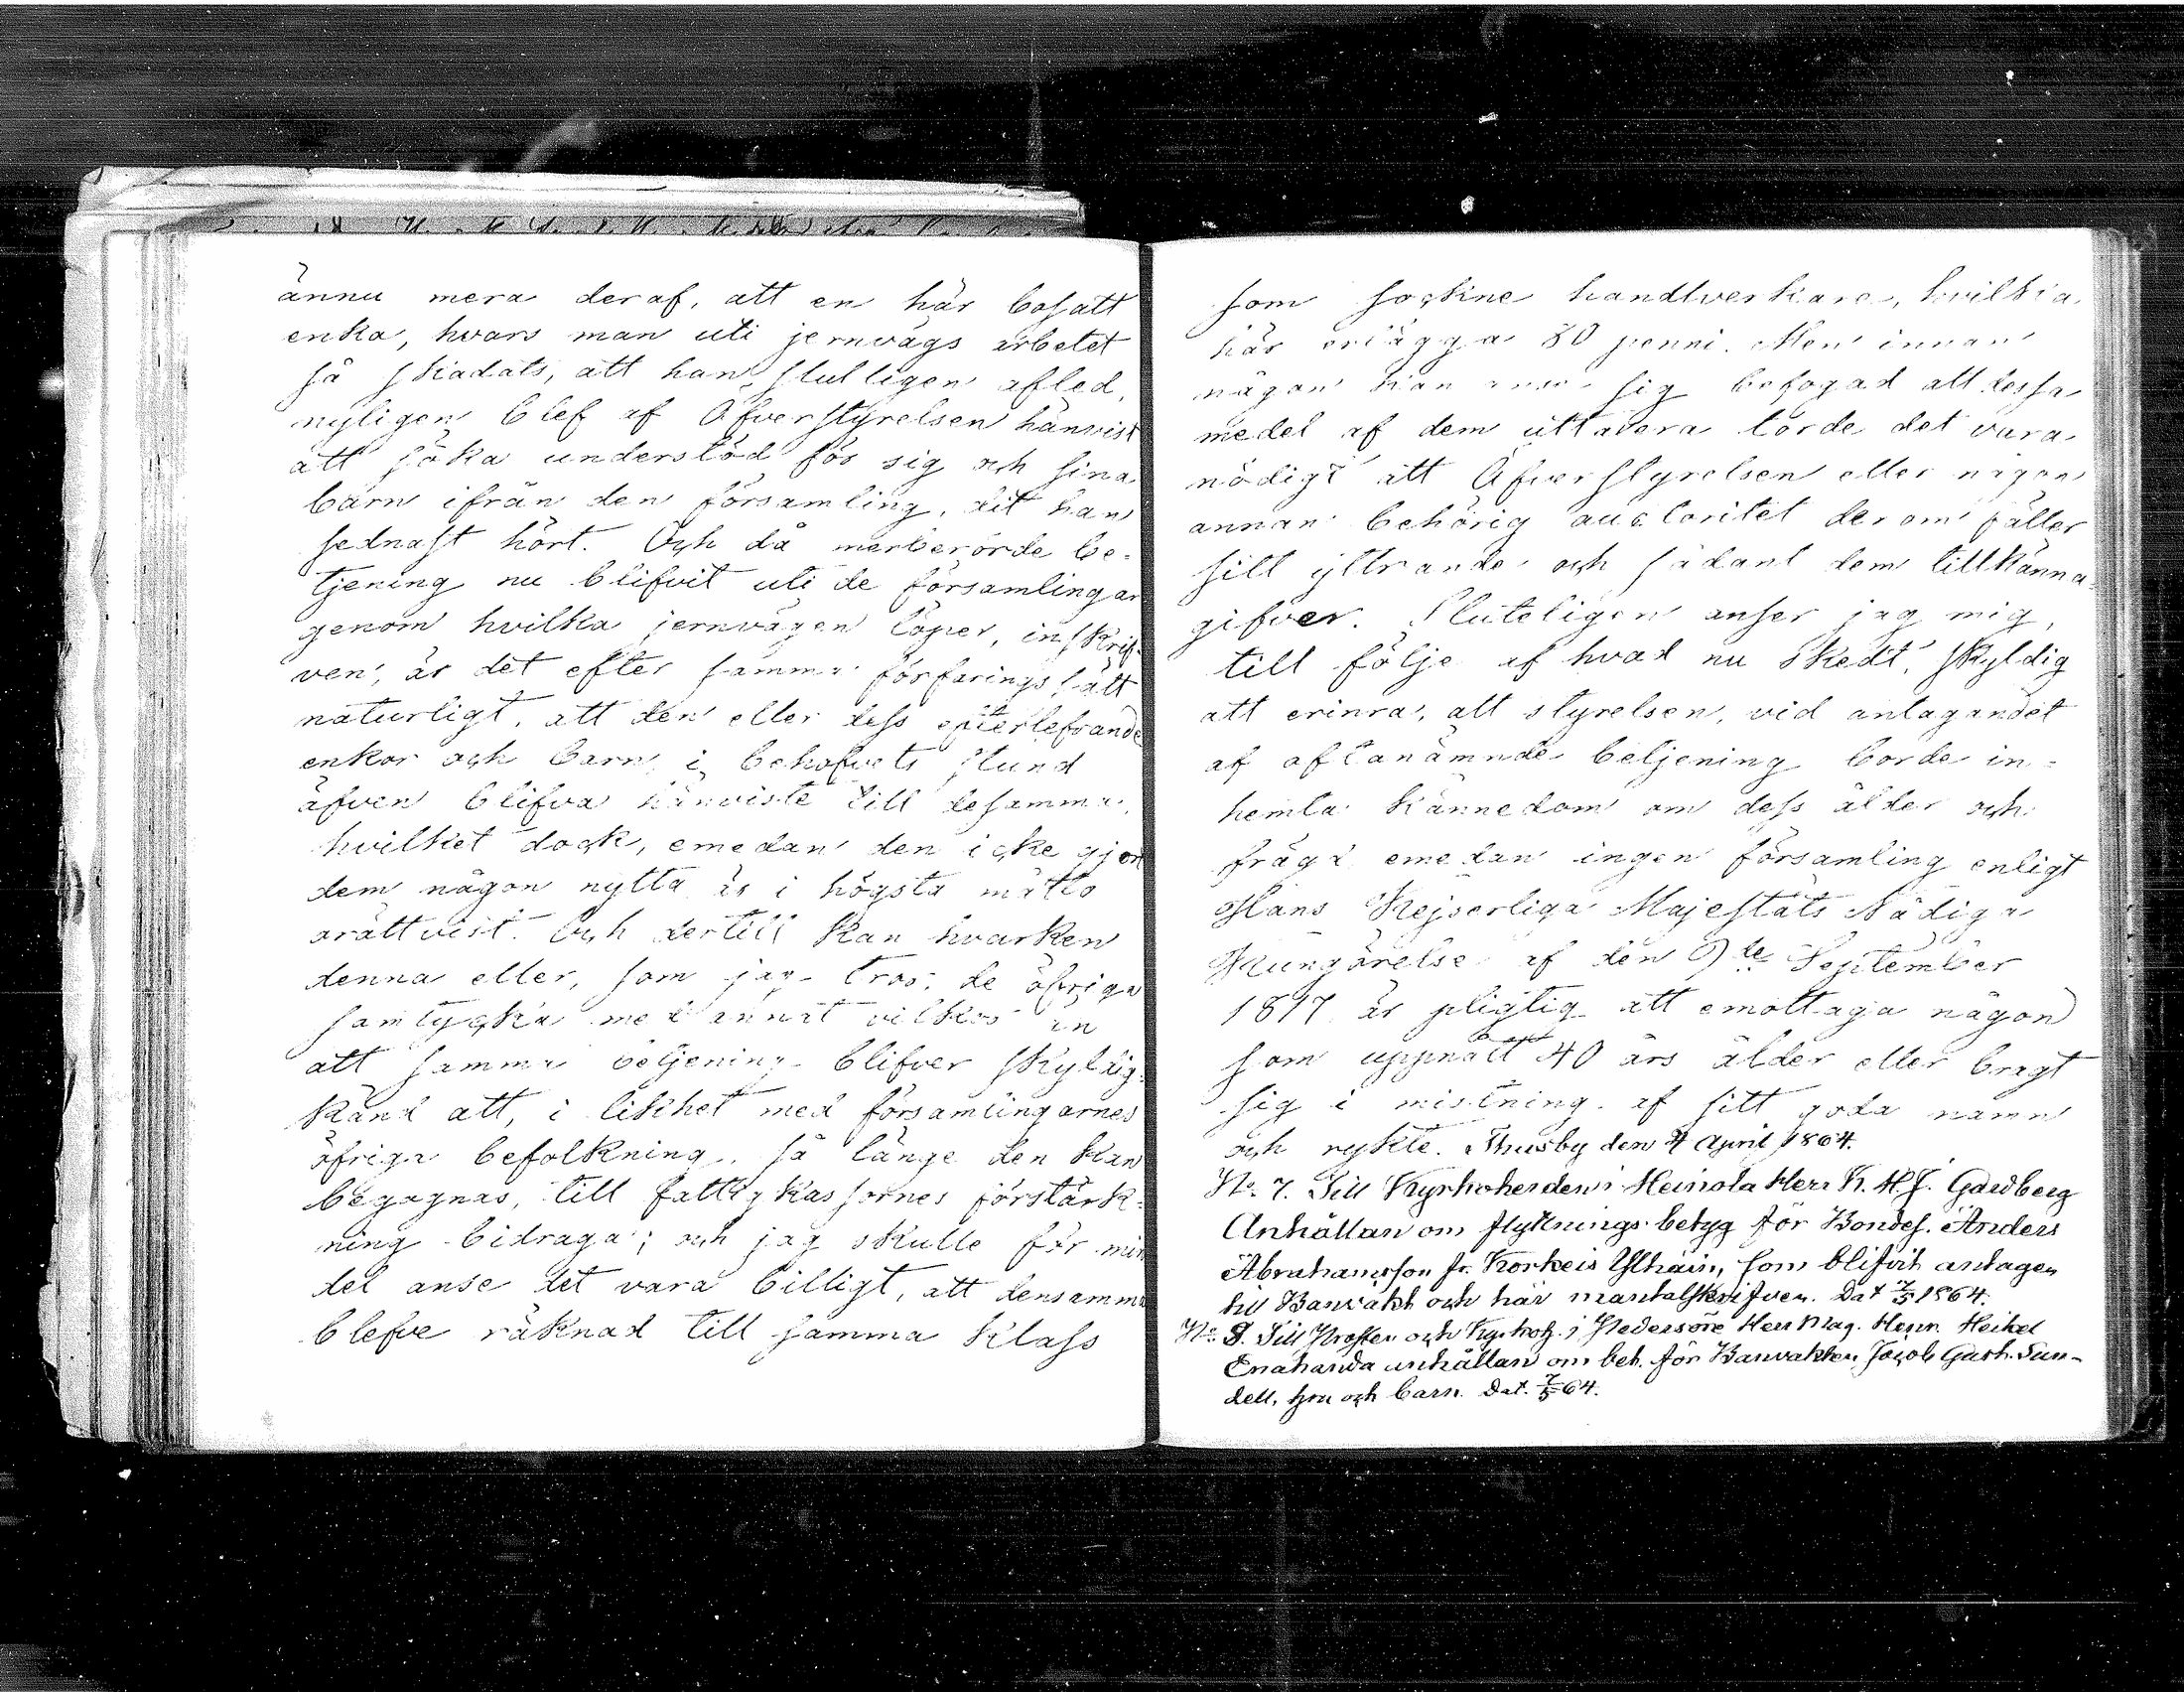 ännu mera deraf, att en här bosatt
enka, hvars man uti jernvägs arbetet
så skadats, att han slutligen afled,
nyligen blef af Öfverstyrelsen hänvist
att söka understöd för sig och sina
barn ifrån den församling, dit han
sednast hört. Och då merberörde be-
tjening nu blifvit uti de församlingar
genom hvilka jernvägen löper, inskrif-
ven, är det efter samma förfaringssätt
naturligt, att den eller dess efterlefvande
enkor och barn, i behofvets stund
äfven blifva hänviste till desamma,
hvilket dock, emedan den icke gjort
dem någon nytta är i högsta måtto
orättvist. Och dertill kan hvarken
denna eller, som jag tror, de öfriga
samtycka med annat vilkor än
att samma betjening blifver skyldig
känd att, i likhet med församlingarnes
öfriga befolkning, så länge den kan
begagnas, till fattigkassornes förstärk-
ning bidraga; och jag skulle för min
del anse det vara billigt, att densamma
blefve räknad till samma klass
som sockne handtverkare, hvilka
här erlägga 80 penni. Men innan
någon kan anse sig befogad att dessa
medel af dem uttaxera torde det vara
nödigt att Öfverstyrelsen eller någon
annan behörig auctoritet derom fäller
sitt yttrande och sådant dem tillkänna-
gifver. Sluteligen anser jag mig,
till följe af hvad nu skedt, skyldig
att erinra, att styrelsen, vid antagandet
af oftanämnde betjening borde in-
hemta kännedom om dess ålder och
frägd emedan ingen församling enligt
Hans Kejserliga Majestäts Nådiga
Kungörelse af den 9de September
1817 är pligtig att emottaga någon
som uppnått 40 års ålder eller bragt
sig i mistning af sitt goda namn
och rykte. Thusby den 4 April 1864.
No 7. Till Kyrkoherden i Heinola Herr K. H. J. Gardberg
Anhållan om flyttnings betyg för Bondes. Anders
Abrahamsson fr. Korkeis som blifvit antagen
till Banvakt och här mantalskrifven. Dat 7/5 1864.
No 8. Till Prosten och Kyrkoh. i Pedersöre Herr Mag. Henr. Heikel
Enahanda anhållan om bet. för Banvakten Jacob Gust. Sun-
dell, hru och barn. Dat. 7/5 64.